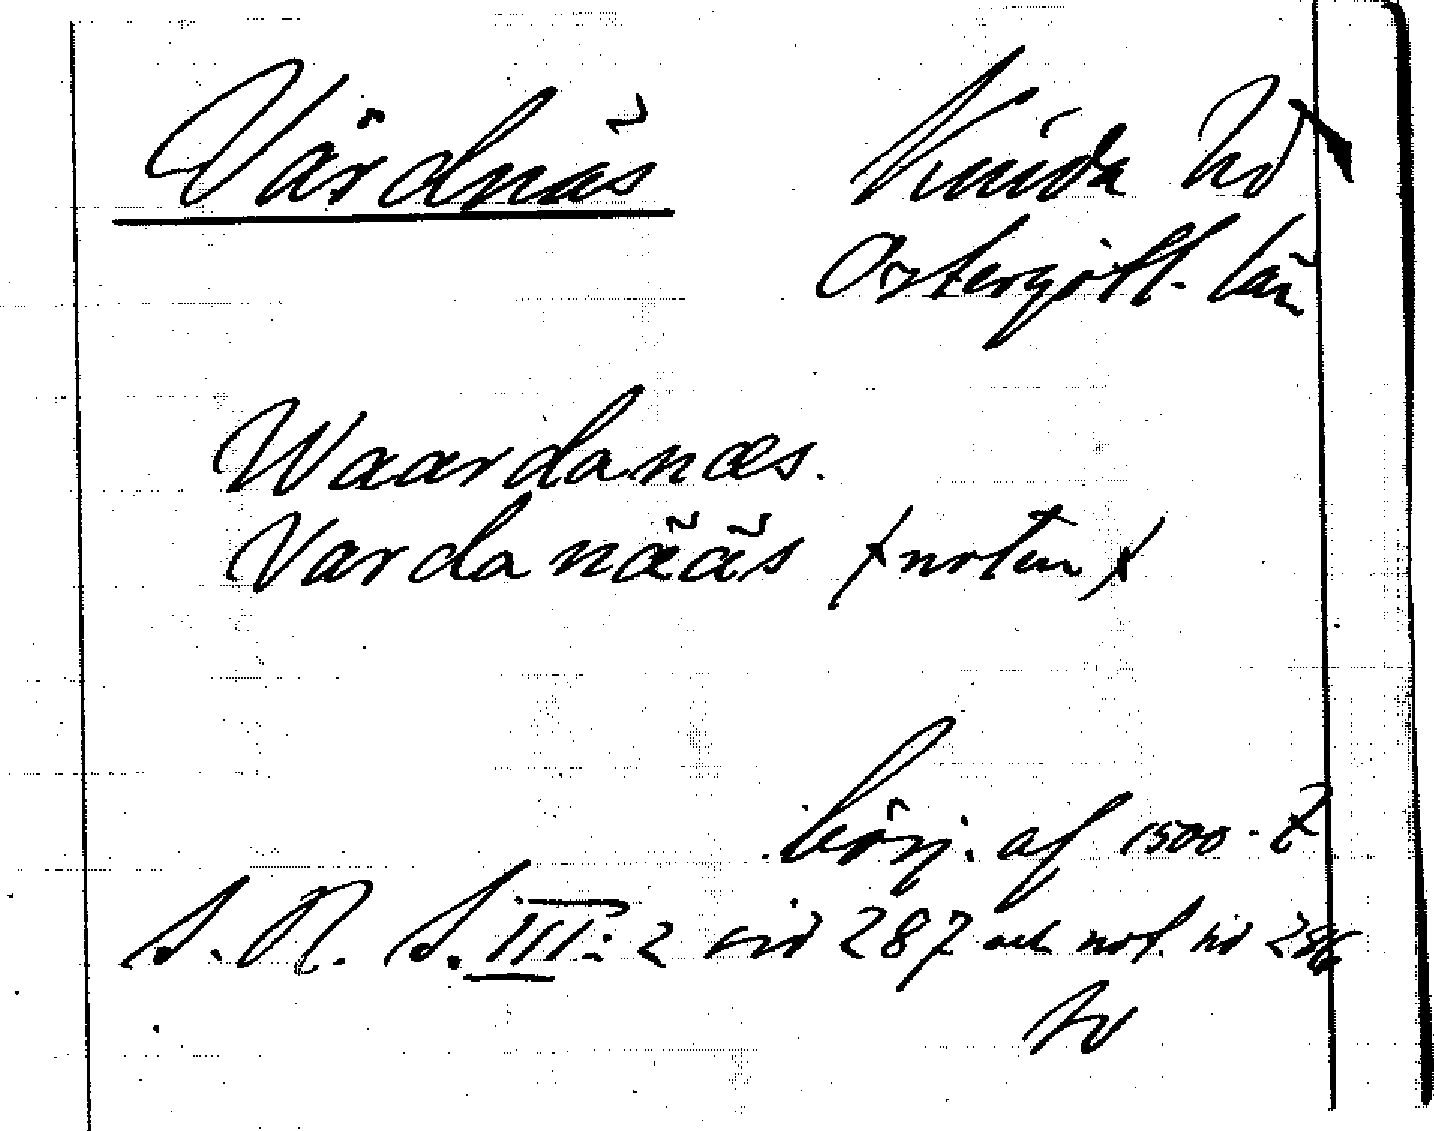 Vårdnäs Kinda hd
Östergötl. län
Waardanæs.
Vardanääs (noten)
börj. af 1500-t
S. R. S. III: 2 sid 287 och not. sid 286